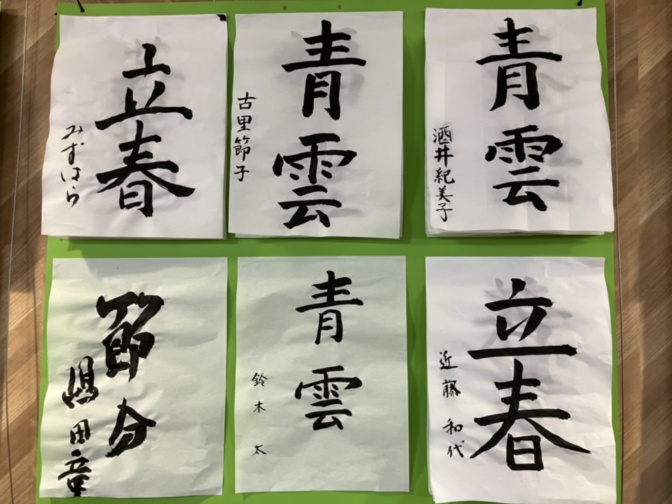 青雲
酒井紀美子
青雲
古里節子
立春
みずはら
立春
近藤和代
青雲
鈴木太
節分